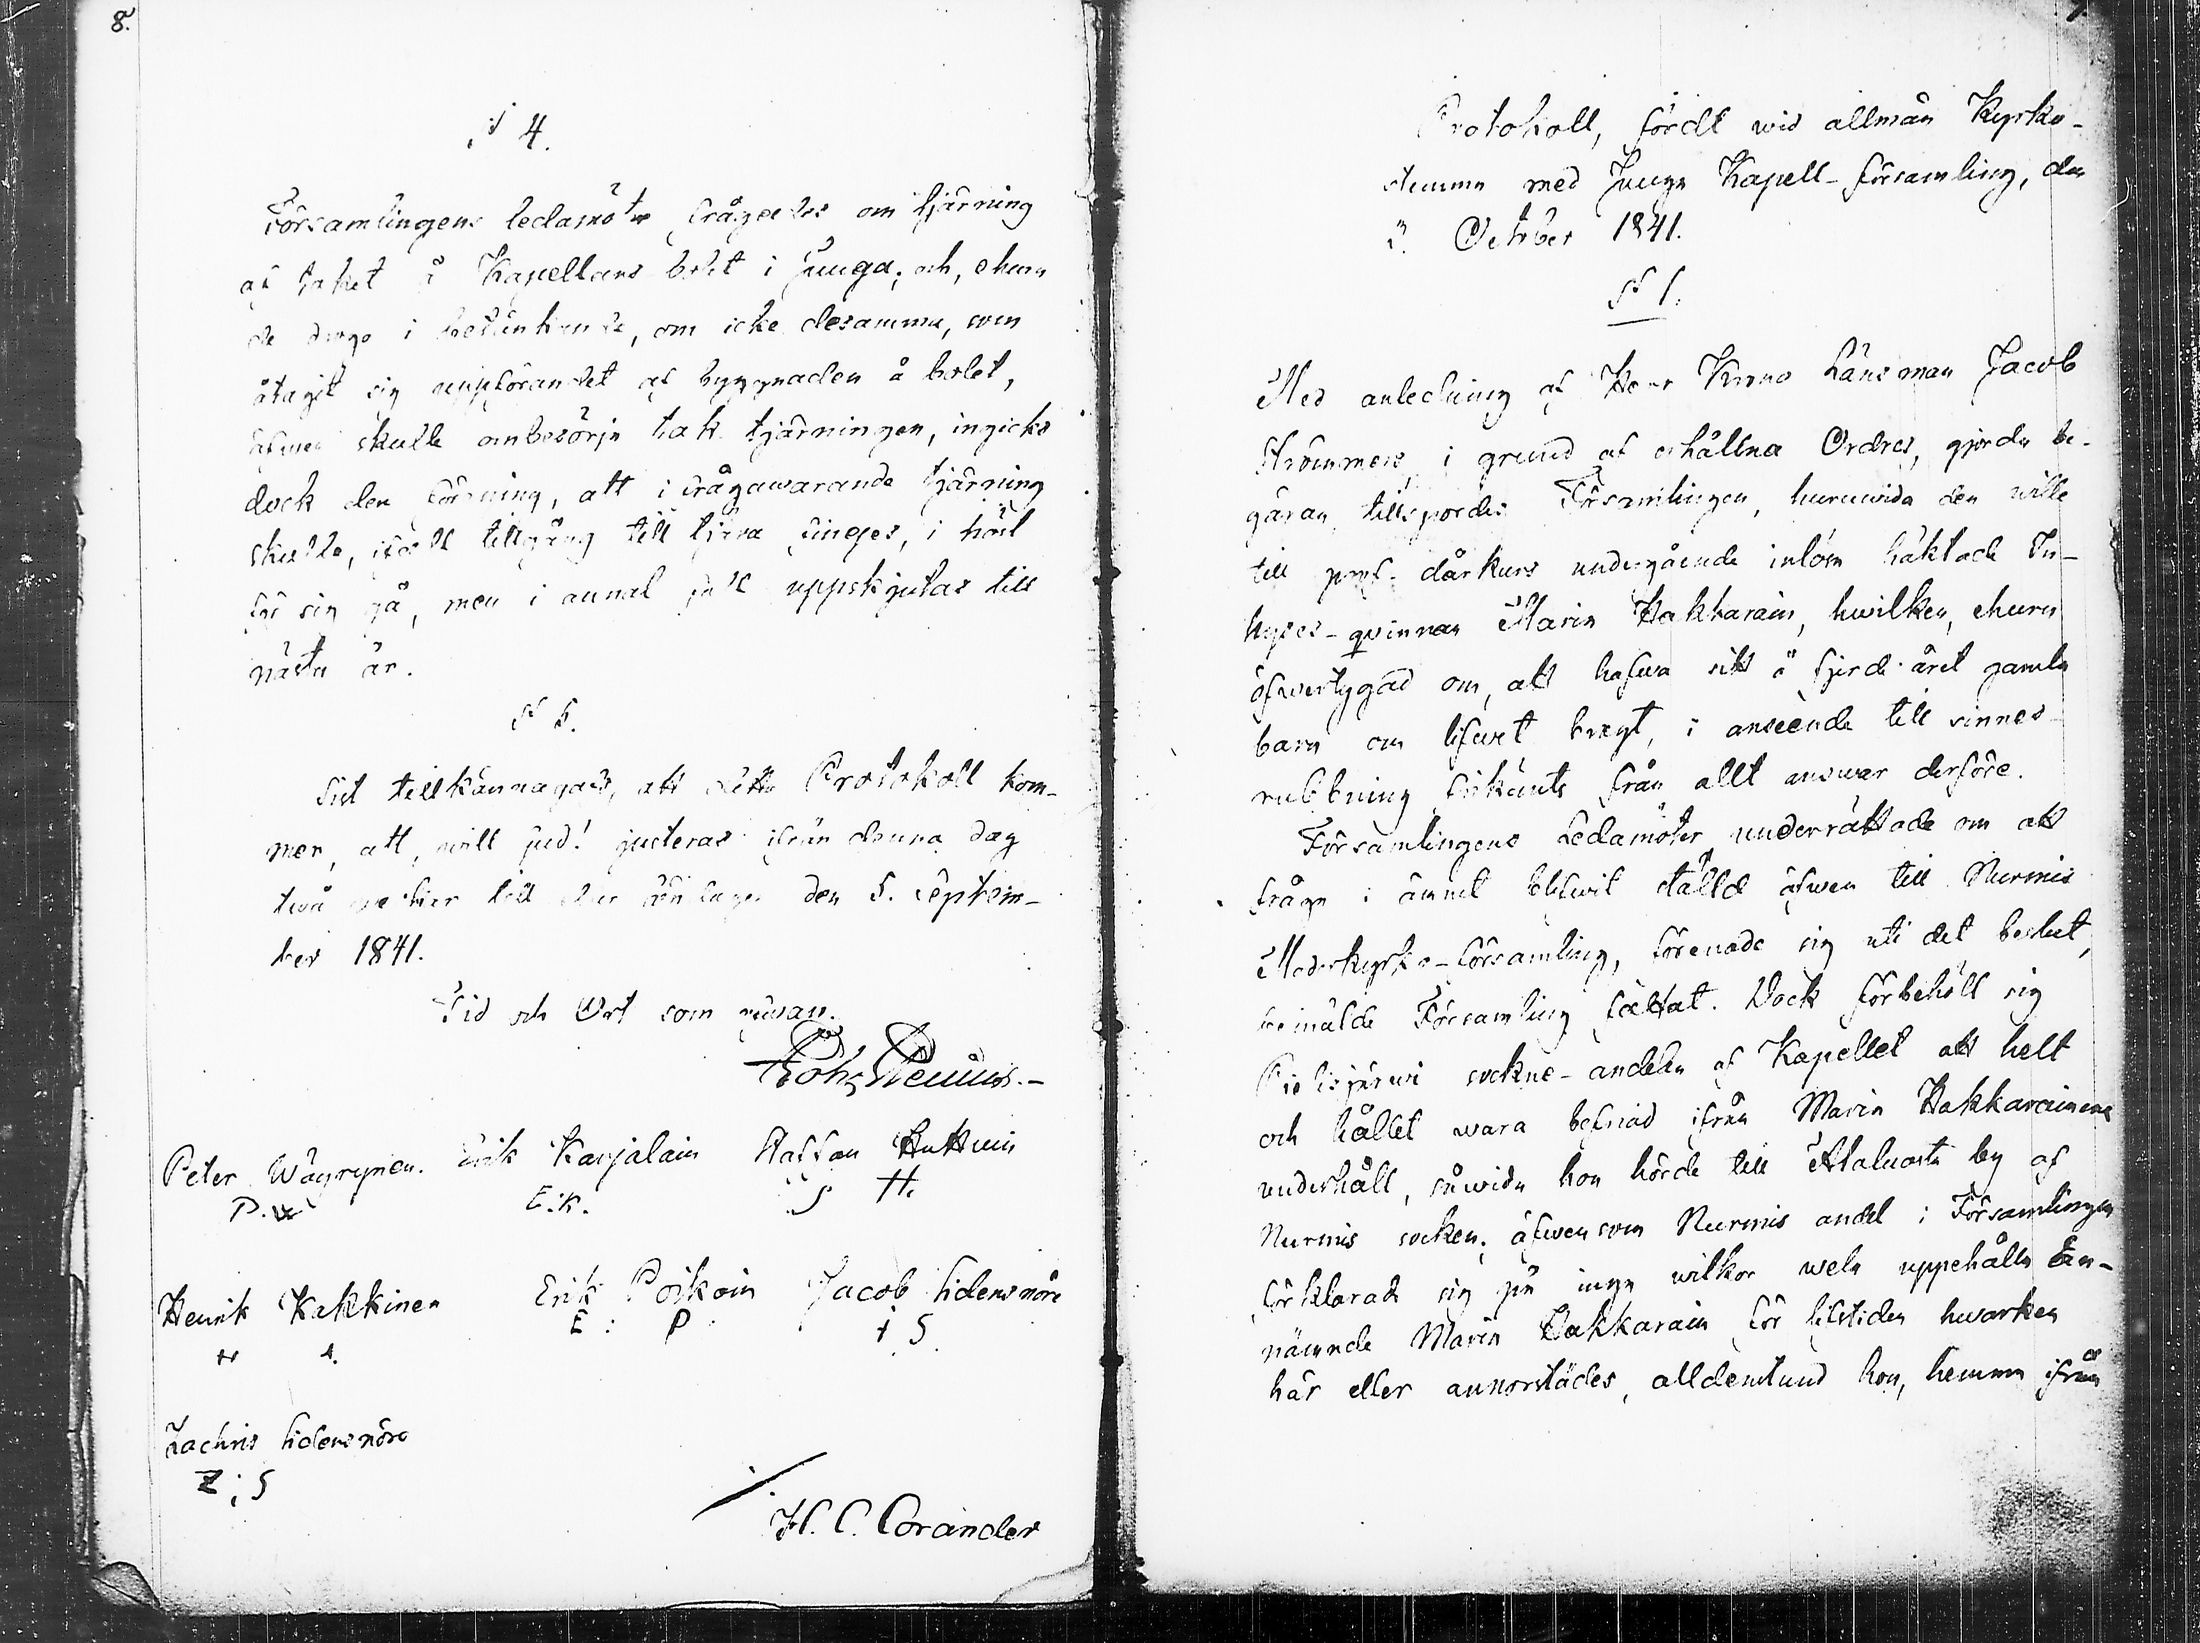 8.
§ 4.
Församlingens ledamöter frågades om tjärning
af taket å Kapellans bolet i Juuga; och, ehuru
de drogo i betänkande, om icke desamma, som
åtagit sig uppförandet af byggnaden å bolet,
äfwen skulle ombesörja tak tjärningen, ingicks
dock den förening, att ifrågawarande tjärning
skulle, ifall tillgång till tjära finges, i höst
för sig gå, men i annat fall uppskjutas till
nästa år.
§ 5.
Sist tillkännagafs, att detta Protokoll kom-
mer, att, will Gud! justeras ifrån denna dag
två weckor till den söndagen den 5. Septem-
ber 1841.
Tid och Ort som ofwan.
Peter Wäyrynen. Erik Karjalain Staffan Huttuin
P.W. E.K. S H.
Henrik Kakkinen Erik Poikoin Jacob Sidensnöre
H K. E : P J S.
Zachris Sidensnöre
Z ; S
H. C. Corander
Protokoll, fördt wid allmän Kyrko-
stemma med Juuga Kapell-församling, den
3. October 1841.
§ 1.
Med anledning af Herr Krono Länsman Jacob
Strömmers, i grund af erhållna Ordres, gjorda be-
gäran tillspordes Församlingen, huruwida den wille
till prof. dårkurs undergående inlösa häktade In-
hyses-qwinnan Maria Hakkarain, hwilken, ehuru
öfwertygad om, att hafwa sitt å fjerde året gamla
barn om lifwet bragt, i anseende till sinnes-
rubbning frikänts från allt answar derföre.
Församlingens Ledamöter, underrättade om att
fråga i ämnet blifwit ställd äfwen till Nurmis
Moderkyrko-församling, förenade sig uti det beslut,
bemälde Församling fattat. Dock förbehöll sig
Pielisjärwi sockne-andelen af Kapellet att helt
och hållet wara befriad ifrån Maria Hakkarainens
underhåll, såwida hon hörde till by af
Nurmis socken; äfwensom Nurmis andel i Församlingen
förklarade sig på inga wilkor wela uppehålla be-
nämnde Maria Hakkarain för lifstiden hwarken
här eller annorstädes, alldenstund hon, hemma ifrån